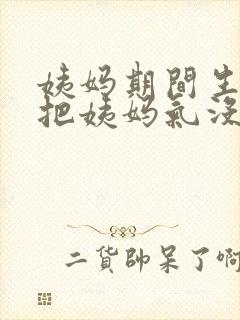 姨妈期間生
把姨妈氣沒
二貨帥呆了啊